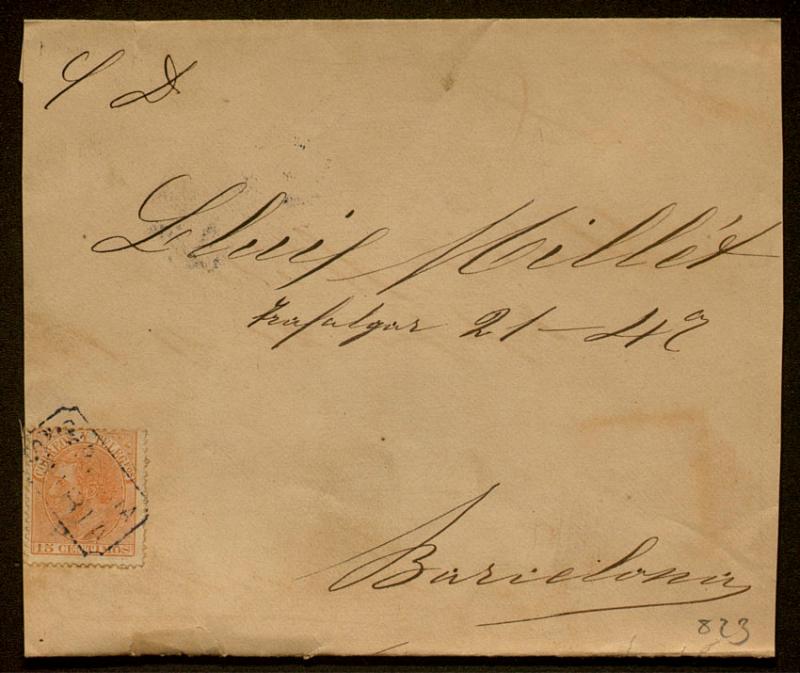 S D
Lluis Millét
Trafalgar 21-4º
Barcelona
CORREOS Y TELEGFOS
15 CENTIMOS
823